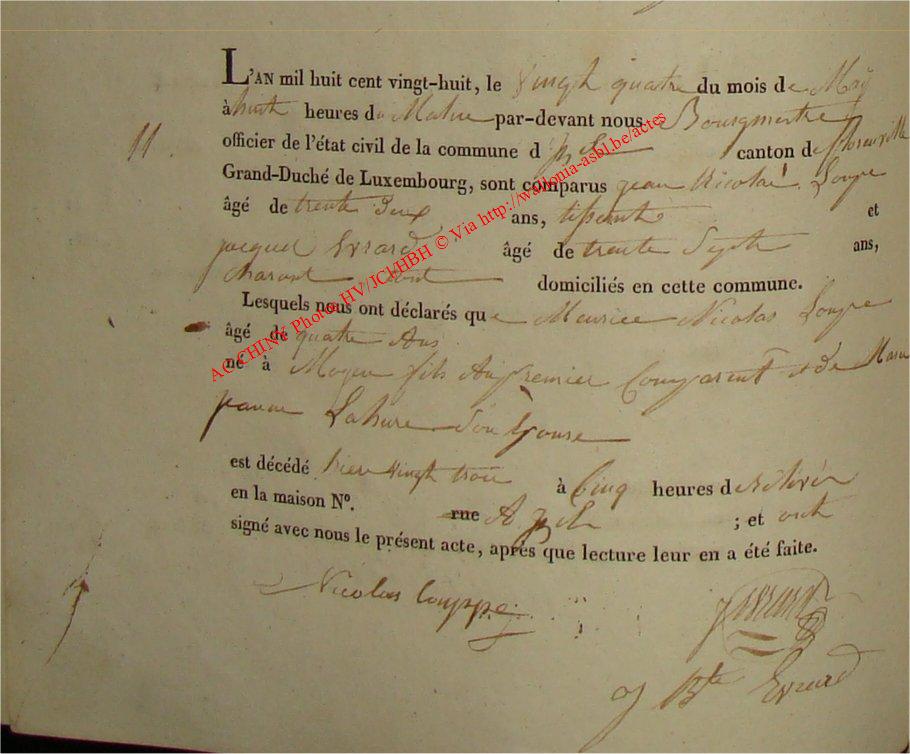 L'AN mil huit cent vingt-huit, le vingt quatre du mois de May
à huit heures du Matin par-devant nous Bourgmestre
11 officier de l'état civil de la commune d canton de florenville
Grand-Duché de Luxembourg, sont comparus jean Nicolas Loupe
âgé de trente deux ans, et
jacque Evrard âgé de trente Septe ans,
domiciliés en cette commune.
Lesquels nous ont déclarés que Meurice Nicolas Loupe
âgé de quatre Ans
né à Moyen fils Du premier Comparent et de Marie
Lahure Son Epouse
est décédé hier vingt trois à Cinq heures de
en la maison N°. rue A ; et ont
signé avec nous le présent acte, après que lecture leur en a été faite.
Nicolas Louppe
Bte Evrard
AC CHINY Photos HV/JCl/HBH © Via http://wallonia-asbl.be/actes